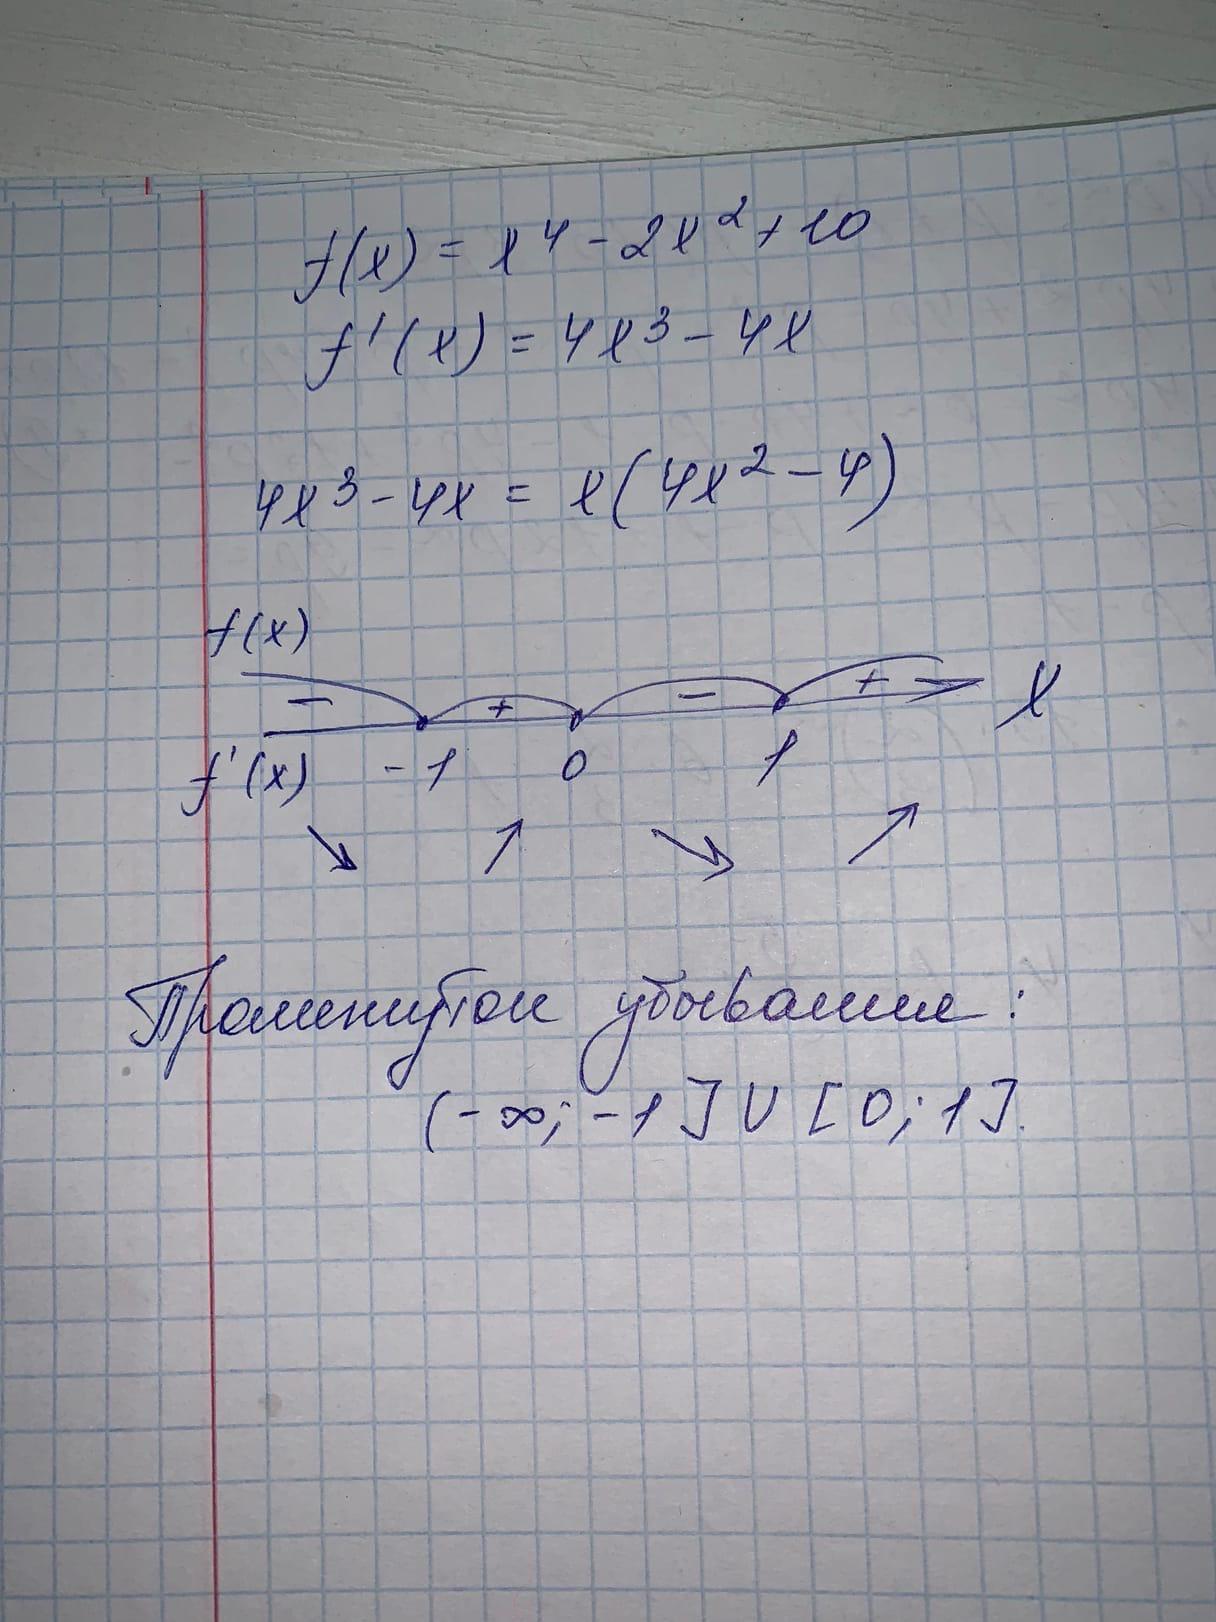 f(x) = x⁴ - 2x² + 10
f'(x) = 4x³ - 4x
4x³ - 4x = x(4x² - 4)
f(x)
- + - + x
f'(x) -1 0 1
↘ ↗ ↘ ↗
Промежуток убывания:
(-∞; -1] ∪ [0; 1].